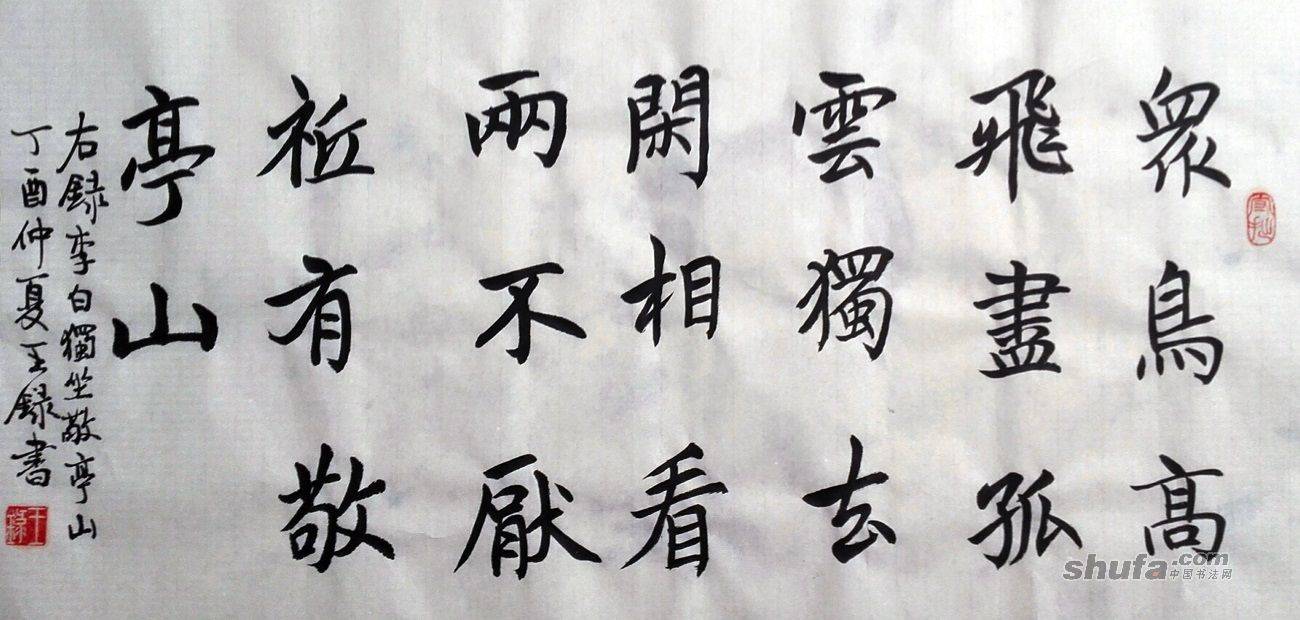 衆鳥高
飛盡孤
雲獨去
閑相看
兩不厭
祗有敬
亭山
右録李白獨坐敬亭山
丁酉仲夏王録書
王録
shufa.com
中国书法网